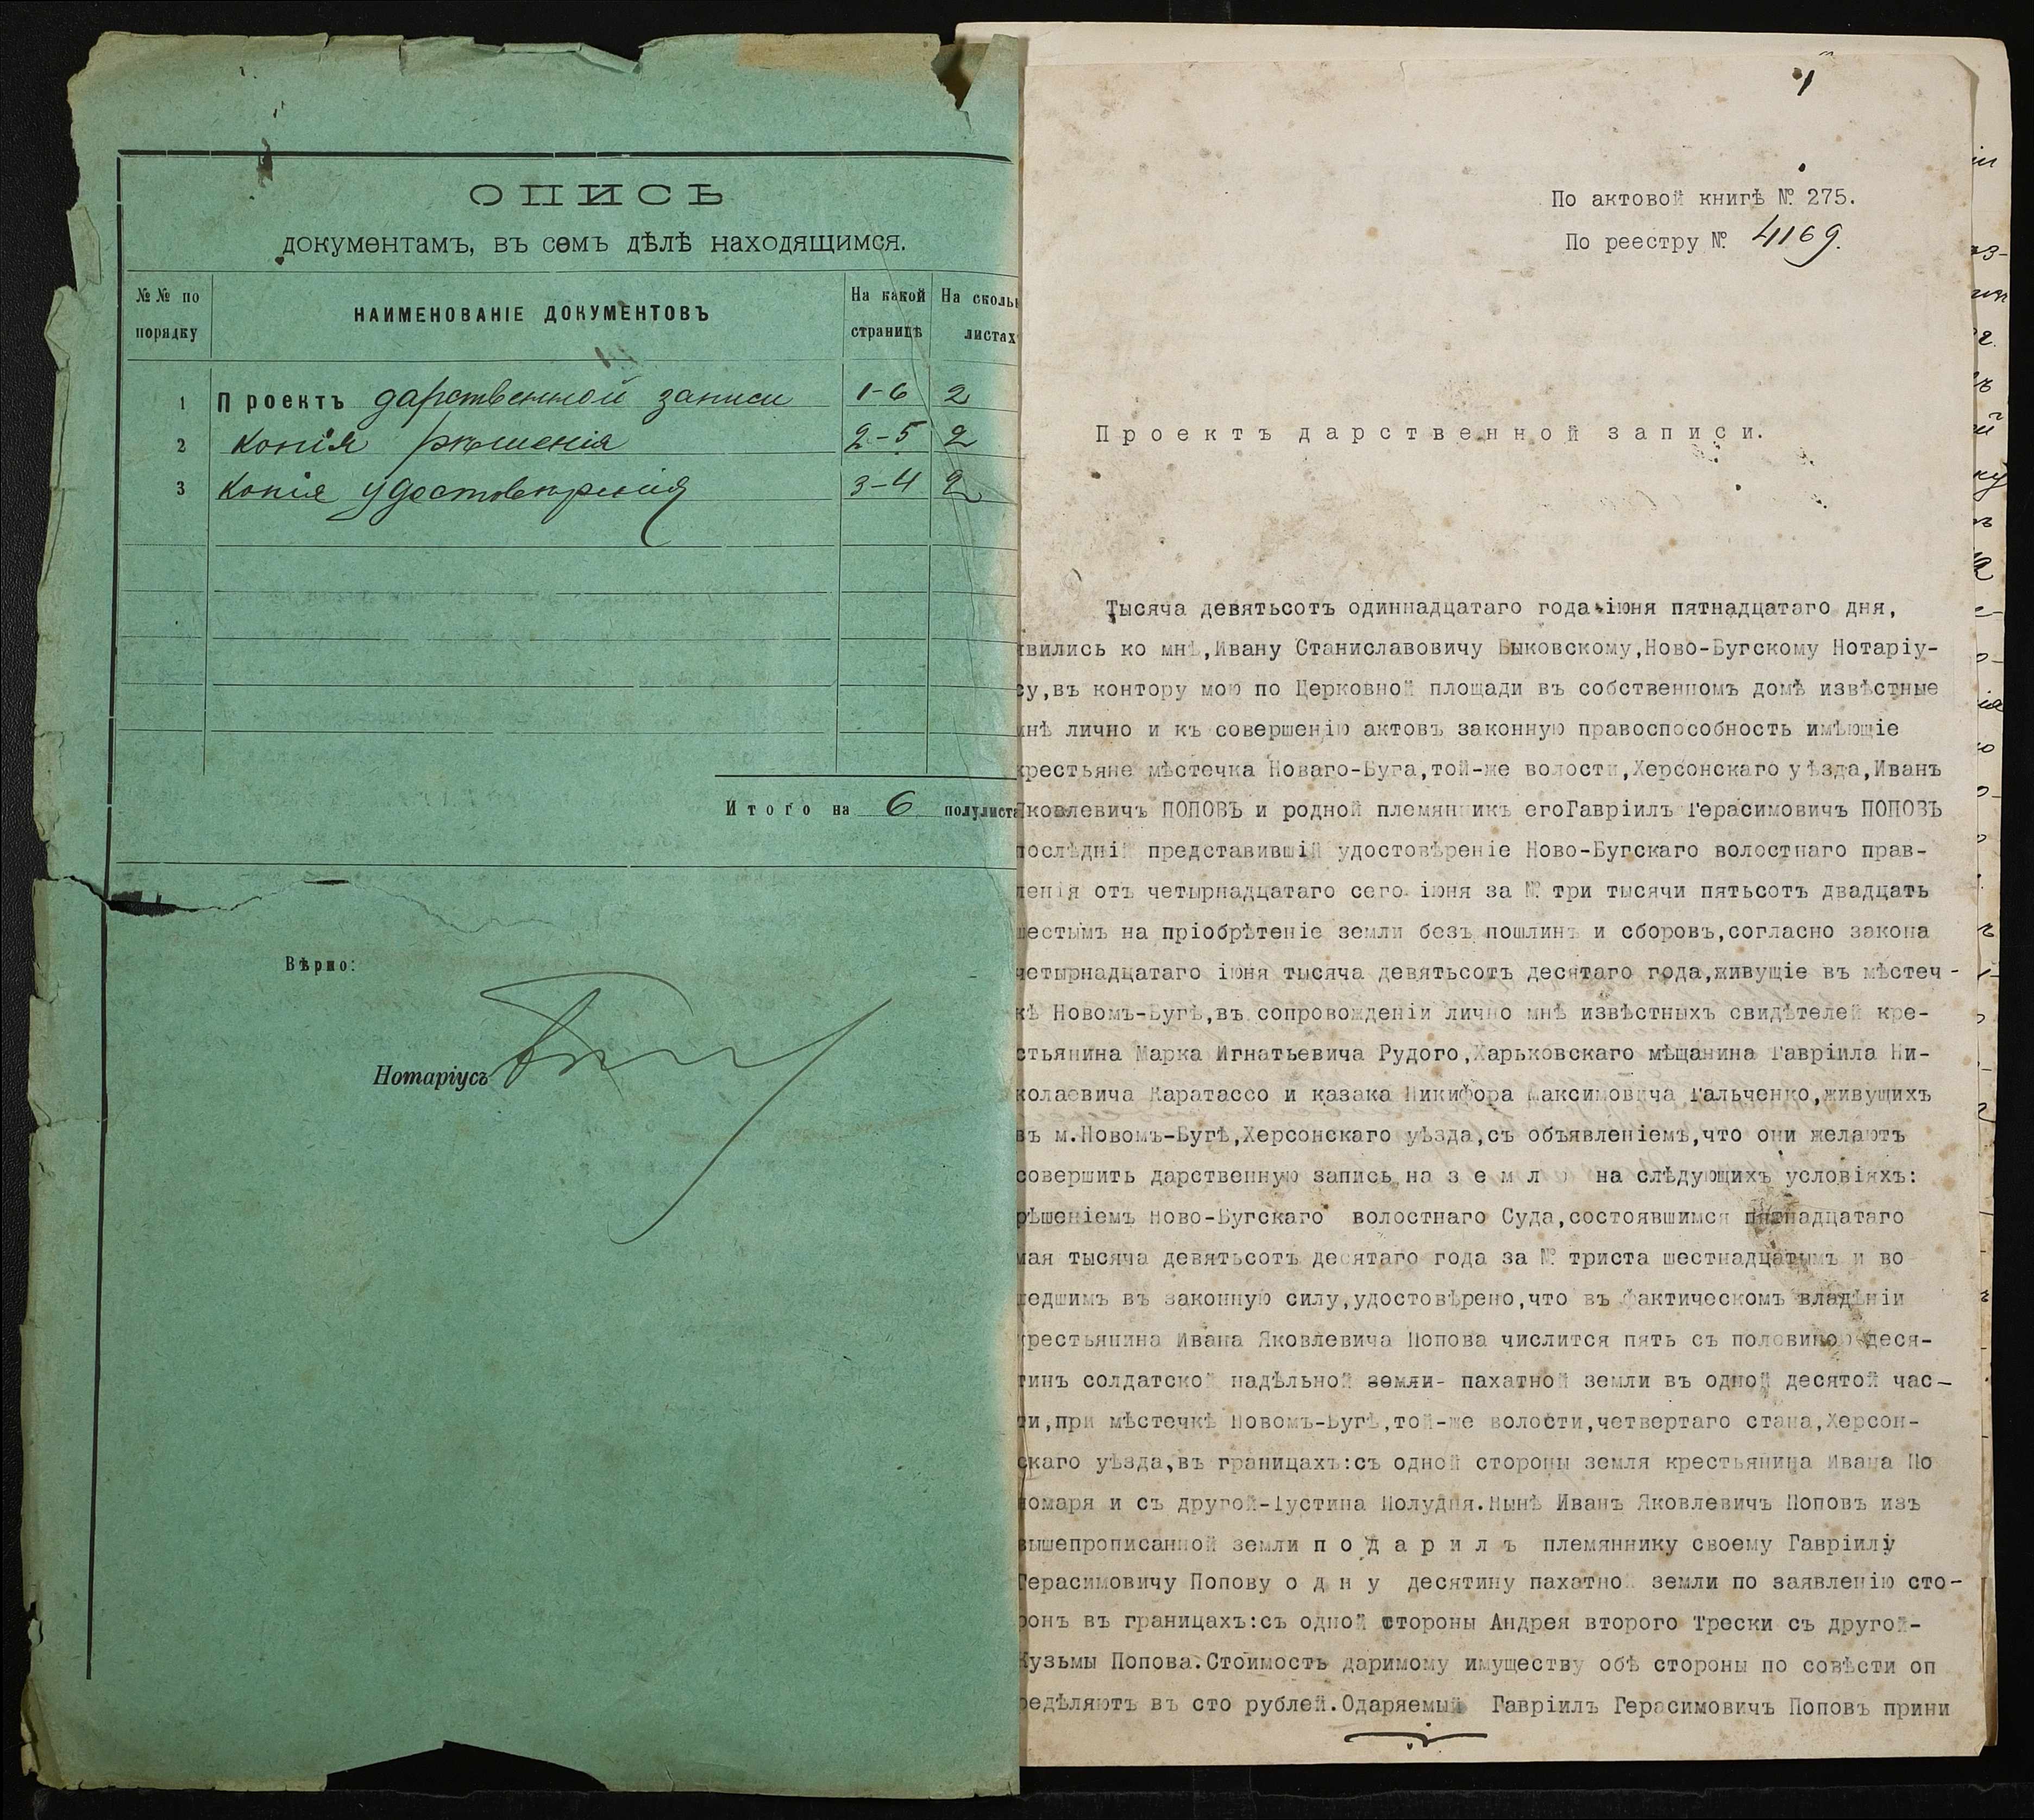 ОПИСЬ
документамъ, въ семъ дѣлѣ находящимся.
№№ по порядку
НАИМЕНОВАНІЕ ДОКУМЕНТОВЪ
На какой страницѣ
На сколь
листах
1 Проектъ дарственной записи 1-6 2
2 Копія рѣшенія 2-5 2
3 Копія удостовѣренія 3-4 2
Итого на 6 полулиста
Вѣрно:
Нотаріусъ
1
По актовой книгѣ № 275.
По реестру № 4169.
Проектъ дарственной записи.
Тысяча девятьсотъ одиннадцатаго года іюня пятнадцатаго дня,
явились ко мнѣ,Ивану Станиславовичу Быковскому,Ново-Бугскому Нотаріу-
су,въ контору мою по Церковной площади въ собственномъ домѣ извѣстные
мнѣ лично и къ совершенію актовъ законную правоспособность имѣющіе
крестьяне мѣстечка Новаго-Буга,той-же волости,Херсонскаго уѣзда,Иванъ
Яковлевичъ ПОПОВЪ и родной племянникъ егоГавріилъ Герасимовичъ ПОПОВЪ
послѣдній представившій удостовѣреніе Ново-Бугскаго волостнаго прав-
ленія отъ четырнадцатаго сего іюня за № три тысячи пятьсотъ двадцать
шестымъ на пріобрѣтеніе земли безъ пошлинъ и сборовъ,согласно закона
четырнадцатаго іюня тысяча девятьсотъ десятаго года,живущіе въ мѣстеч-
кѣ Новомъ-Бугѣ,въ сопровожденіи лично мнѣ извѣстныхъ свидѣтелей кре-
стьянина Марка Игнатьевича Рудого,Харьковскаго мѣщанина Гавріила Ни-
колаевича Каратассо и казака Никифора Максимовича Гальченко,живущихъ
въ м.Новомъ-Бугѣ,Херсонскаго уѣзда,съ объявленіемъ,что они желаютъ
совершить дарственную запись на з е м л ю на слѣдующихъ условіяхъ:
рѣшеніемъ Ново-Бугскаго волостнаго Суда,состоявшимся пятнадцатаго
мая тысяча девятьсотъ десятаго года за № триста шестнадцатымъ и во
шедшимъ въ законную силу,удостовѣрено,что въ фактическомъ владѣніи
крестьянина Ивана Яковлевича Попова числится пять съ половиною деся-
тинъ солдатской надѣльной земли- пахатной земли въ одной десятой час-
ти,при мѣстечкѣ Новомъ-Бугѣ,той-же волости,четвертаго стана,Херсон-
скаго уѣзда,въ границахъ:съ одной стороны земля крестьянина Ивана По
номаря и съ другой-Іустина Полудня.Нынѣ Иванъ Яковлевичъ Поповъ изъ
вышепрописанной земли п о д а р и л ъ племяннику своему Гавріилу
Герасимовичу Попову о д н у десятину пахатной земли по заявленію сто-
ронъ въ границахъ:съ одной стороны Андрея второго Трески съ другой-
Кузьмы Попова.Стоимость даримому имуществу обѣ стороны по совѣсти оп
редѣляютъ въ сто рублей.Одаряемый Гавріилъ Герасимовичъ Поповъ прини